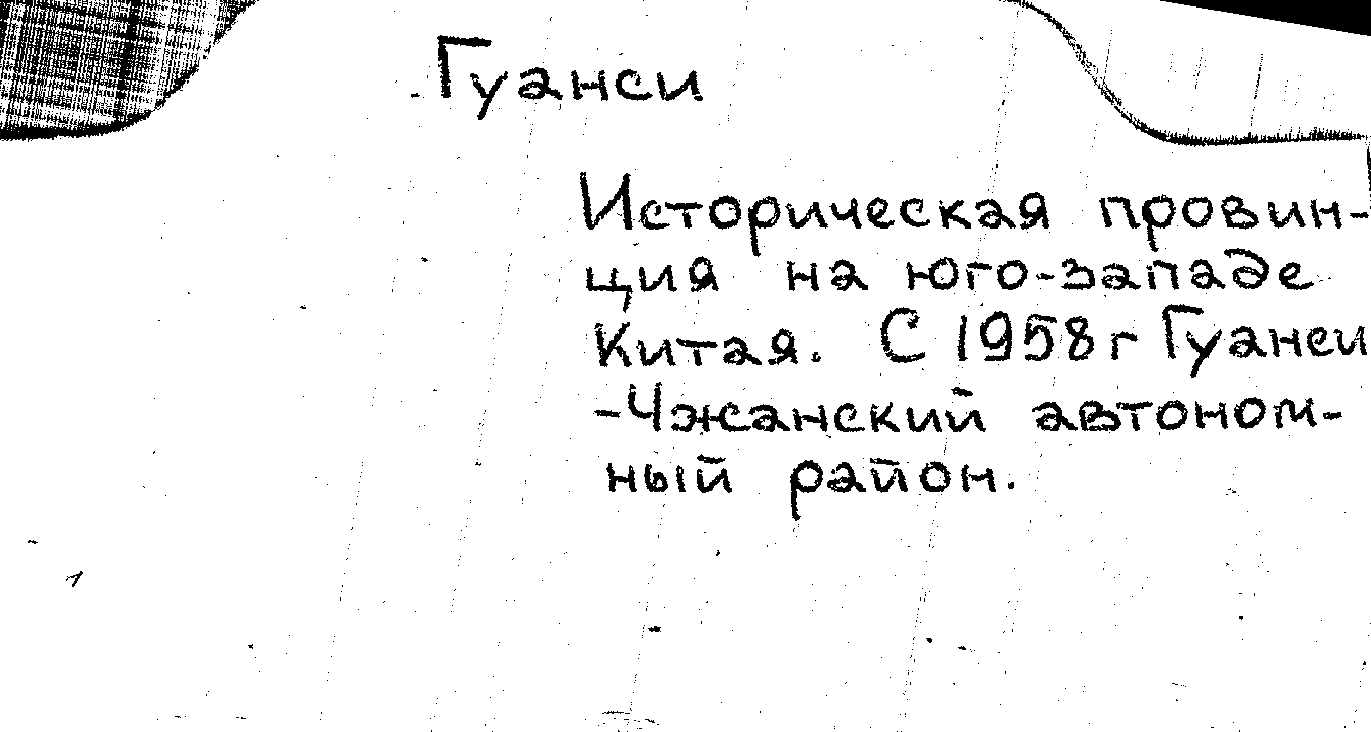 Гуанси
Историческая провин-
ция на юго-западе
Китая. С 1958 г Гуанси
-Чжанский автоном-
ный район.